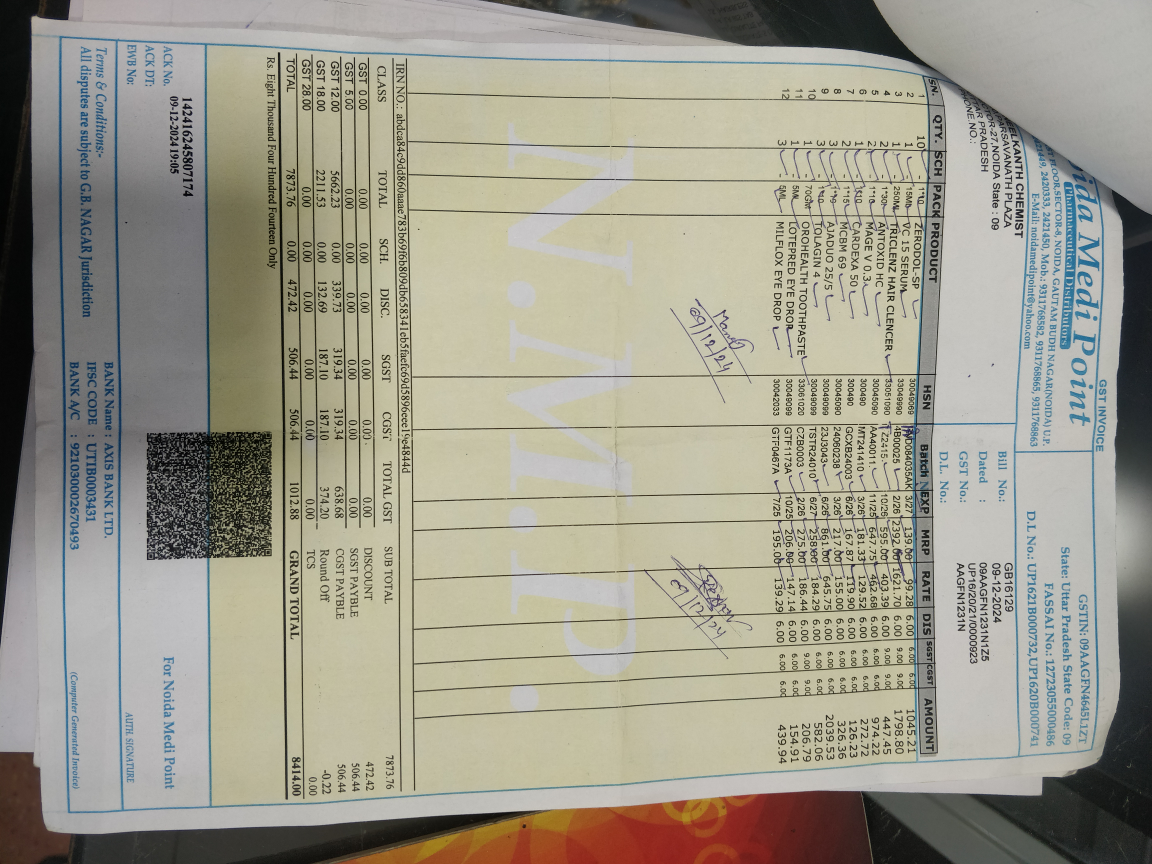 GST INVOICE
Medi Point
Pharmaceutical Distributors
FLOOR,SECTOR-8, NOIDA, GAUTAM BUDH NAGAR(NOIDA) U.P.
2420333, 2421450, Mob.: 9311768582, 9311768865, 9311768863
E-Mail: noidamedipoint@yahoo.com
GSTIN: 09AAGFN4645L1ZT
State: Uttar Pradesh State Code: 09
FASSAI No.: 12723055000486
D.L No.: UP1621B000732,UP1620B000741
CHEMIST
PARSAVANATH PLAZA
NOIDA State : 09
PRADESH
Bill No.: GB16129
Dated : 09-12-2024
GST No.: 09AAGFN1231N1Z5
D.L. No.: UP16/20/21/0000923
AAGFN1231N
SN. QTY. SCH PACK PRODUCT HSN Batch EXP MRP RATE DIS SGST CGST AMOUNT
1 10 - 1*10 ZERODOL-SP 30049069 3/27 139.00 99.28 6.00 6.00 6.00 1045.21
2 1 - 15ML VC 15 SERUM 33049990 4B00025 2/26 2392.00 1621.70 6.00 9.00 9.00 1798.80
3 1 - 250ML TRICLENZ HAIR CLENCER 33051090 TZ2415 10/26 595.00 403.39 6.00 9.00 9.00 447.45
4 2 - 1*30 ANTOXID HC 30045090 AA40011 11/25 647.75 462.68 6.00 6.00 6.00 974.22
5 2 - 1*15 MAGE V 0.3 30045090 MT241410 3/26 181.33 129.52 6.00 6.00 6.00 272.72
6 1 - 1*10 CARDEXA 50 300490 GCXB24003 6/26 167.87 119.90 6.00 6.00 6.00 126.23
7 2 - 1*15 MCBM 69 300490 24060238 3/26 217.00 155.00 6.00 6.00 6.00 326.36
8 3 - 1*10 AJADUO 25/5 30049099 23J3043 6/26 861.00 645.75 6.00 6.00 6.00 2039.53
9 3 - 1*10 TOLAGIN 4 30049099 TSTR24010 6/27 258.00 184.29 6.00 6.00 6.00 582.06
10 1 - 70GM OROHEALTH TOOTHPASTE 33061020 CZB0003 2/26 275.00 186.44 6.00 9.00 9.00 206.79
11 1 - 5ML LOTEPRED EYE DROP 30049099 GTF1173A 10/25 206.00 147.14 6.00 6.00 6.00 154.91
12 3 - 5ML MILFLOX EYE DROP 30042033 GTF0467A 7/25 195.00 139.29 6.00 6.00 6.00 439.94
09/12/24
09/12/24
N.M.P.
IRN NO.: abdca84c9dd860aaae783b69f6b809db658341eb5faefc69d5896ceec19e4844d
CLASS TOTAL SCH. DISC. SGST CGST TOTAL GST
GST 0.00 0.00 0.00 0.00 0.00 0.00 0.00
GST 5.00 0.00 0.00 0.00 0.00 0.00 0.00
GST 12.00 5662.23 0.00 339.73 319.34 319.34 638.68
GST 18.00 2211.53 0.00 132.69 187.10 187.10 374.20
GST 28.00 0.00 0.00 0.00 0.00 0.00 0.00
TOTAL 7873.76 0.00 472.42 506.44 506.44 1012.88
SUB TOTAL 7873.76
DISCOUNT 472.42
SGST PAYBLE 506.44
CGST PAYBLE 506.44
Round Off -0.22
TCS 0.00
GRAND TOTAL 8414.00
Rs. Eight Thousand Four Hundred Fourteen Only
ACK No. 142416245807174
ACK DT: 09-12-2024 19:05
EWB No:
For Noida Medi Point
AUTH. SIGNATURE
Terms & Conditions:-
All disputes are subject to G.B. NAGAR Jurisdiction
BANK Name : AXIS BANK LTD.
IFSC CODE : UTIB0003431
BANK A/C : 921030002670493
(Computer Generated Invoice)